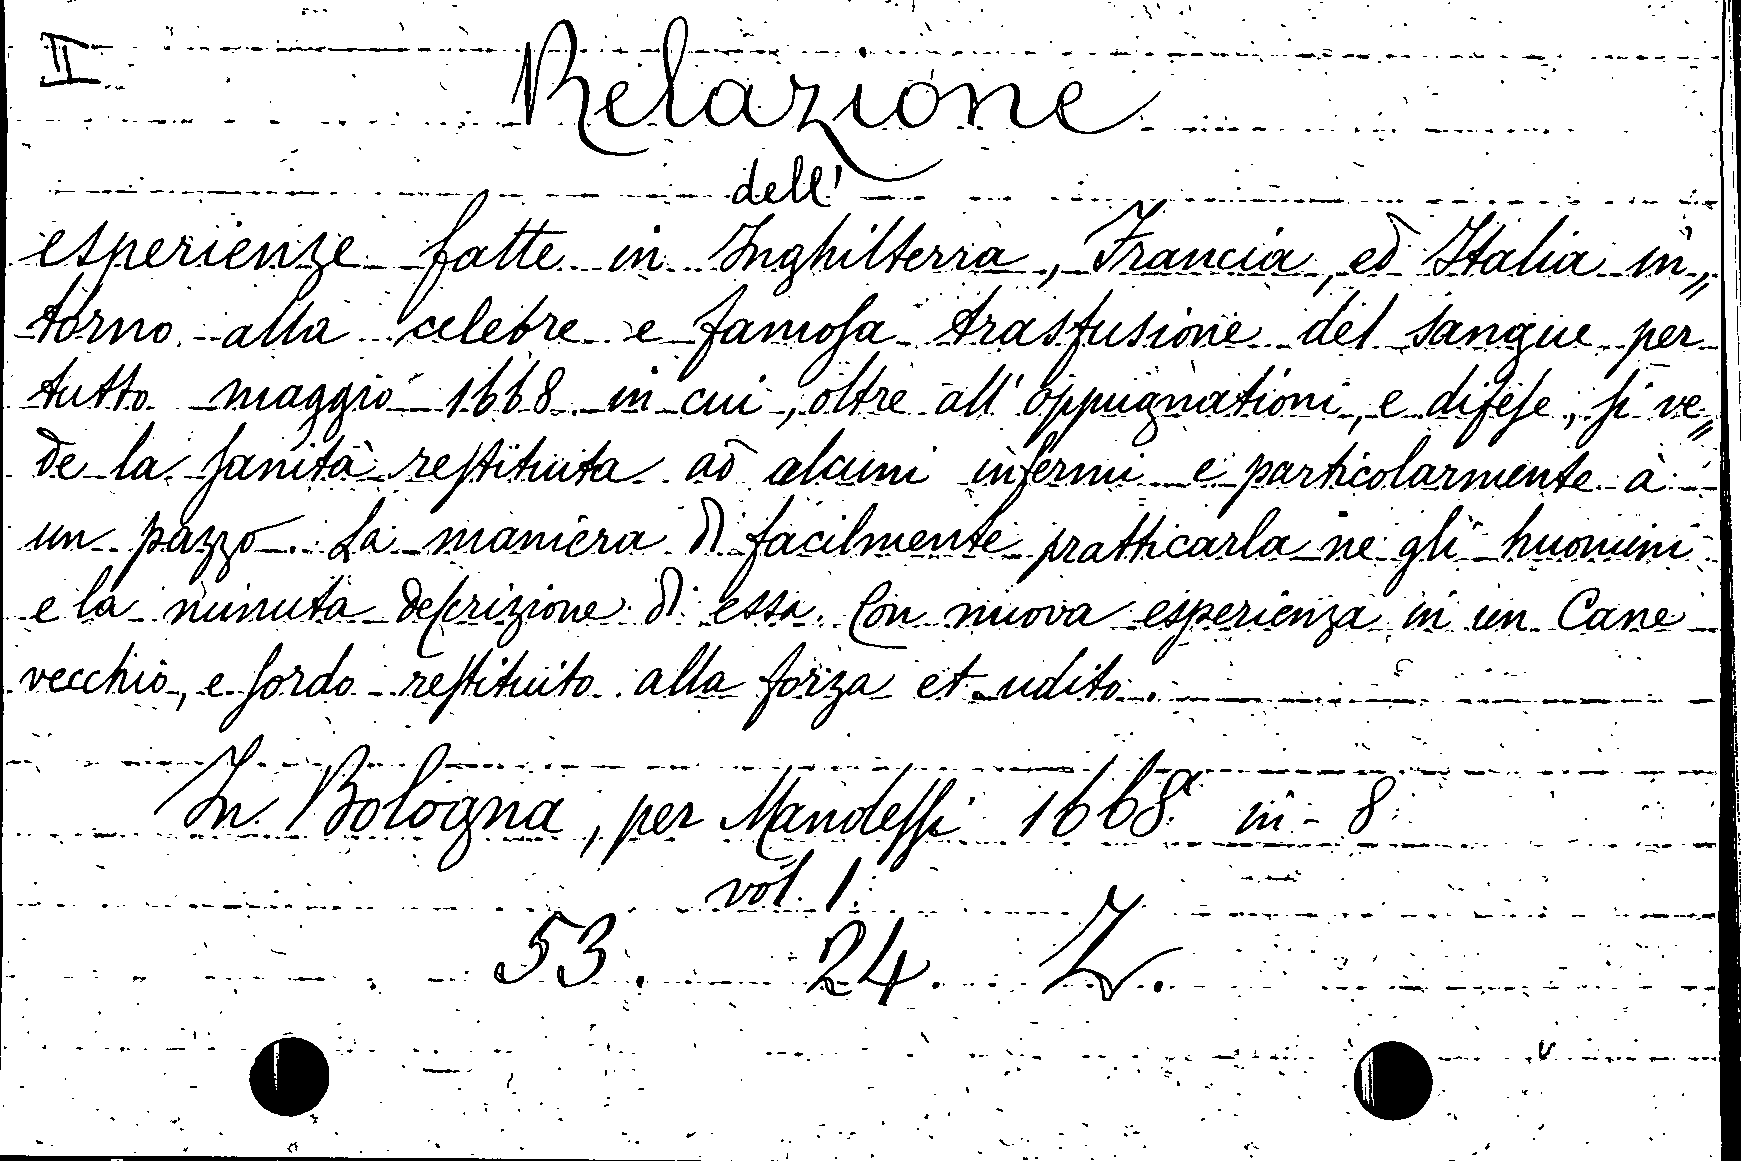 II
Relazione
dell'
esperienze fatte in Inghilterra, Francia, ed Italia in„
torno alla celebre e famoſa trasfusione del sangue per
tutto maggio 1668 in cui, oltre all' oppugnationi, e difeſe, ſi ve„
de la ſanità reſtituita ad alcuni infermi e particolarmente à
un pazzo. La maniera di facilmente pratticarla ne gli huomini
e la minuta deſcrizione di essa. Con nuova esperienza in un Cane
vecchio, e ſordo reſtituito alla forza et udito.
In Bologna, per Manoleſſi 1668 in-8
vol. 1.
53. 24. Z.